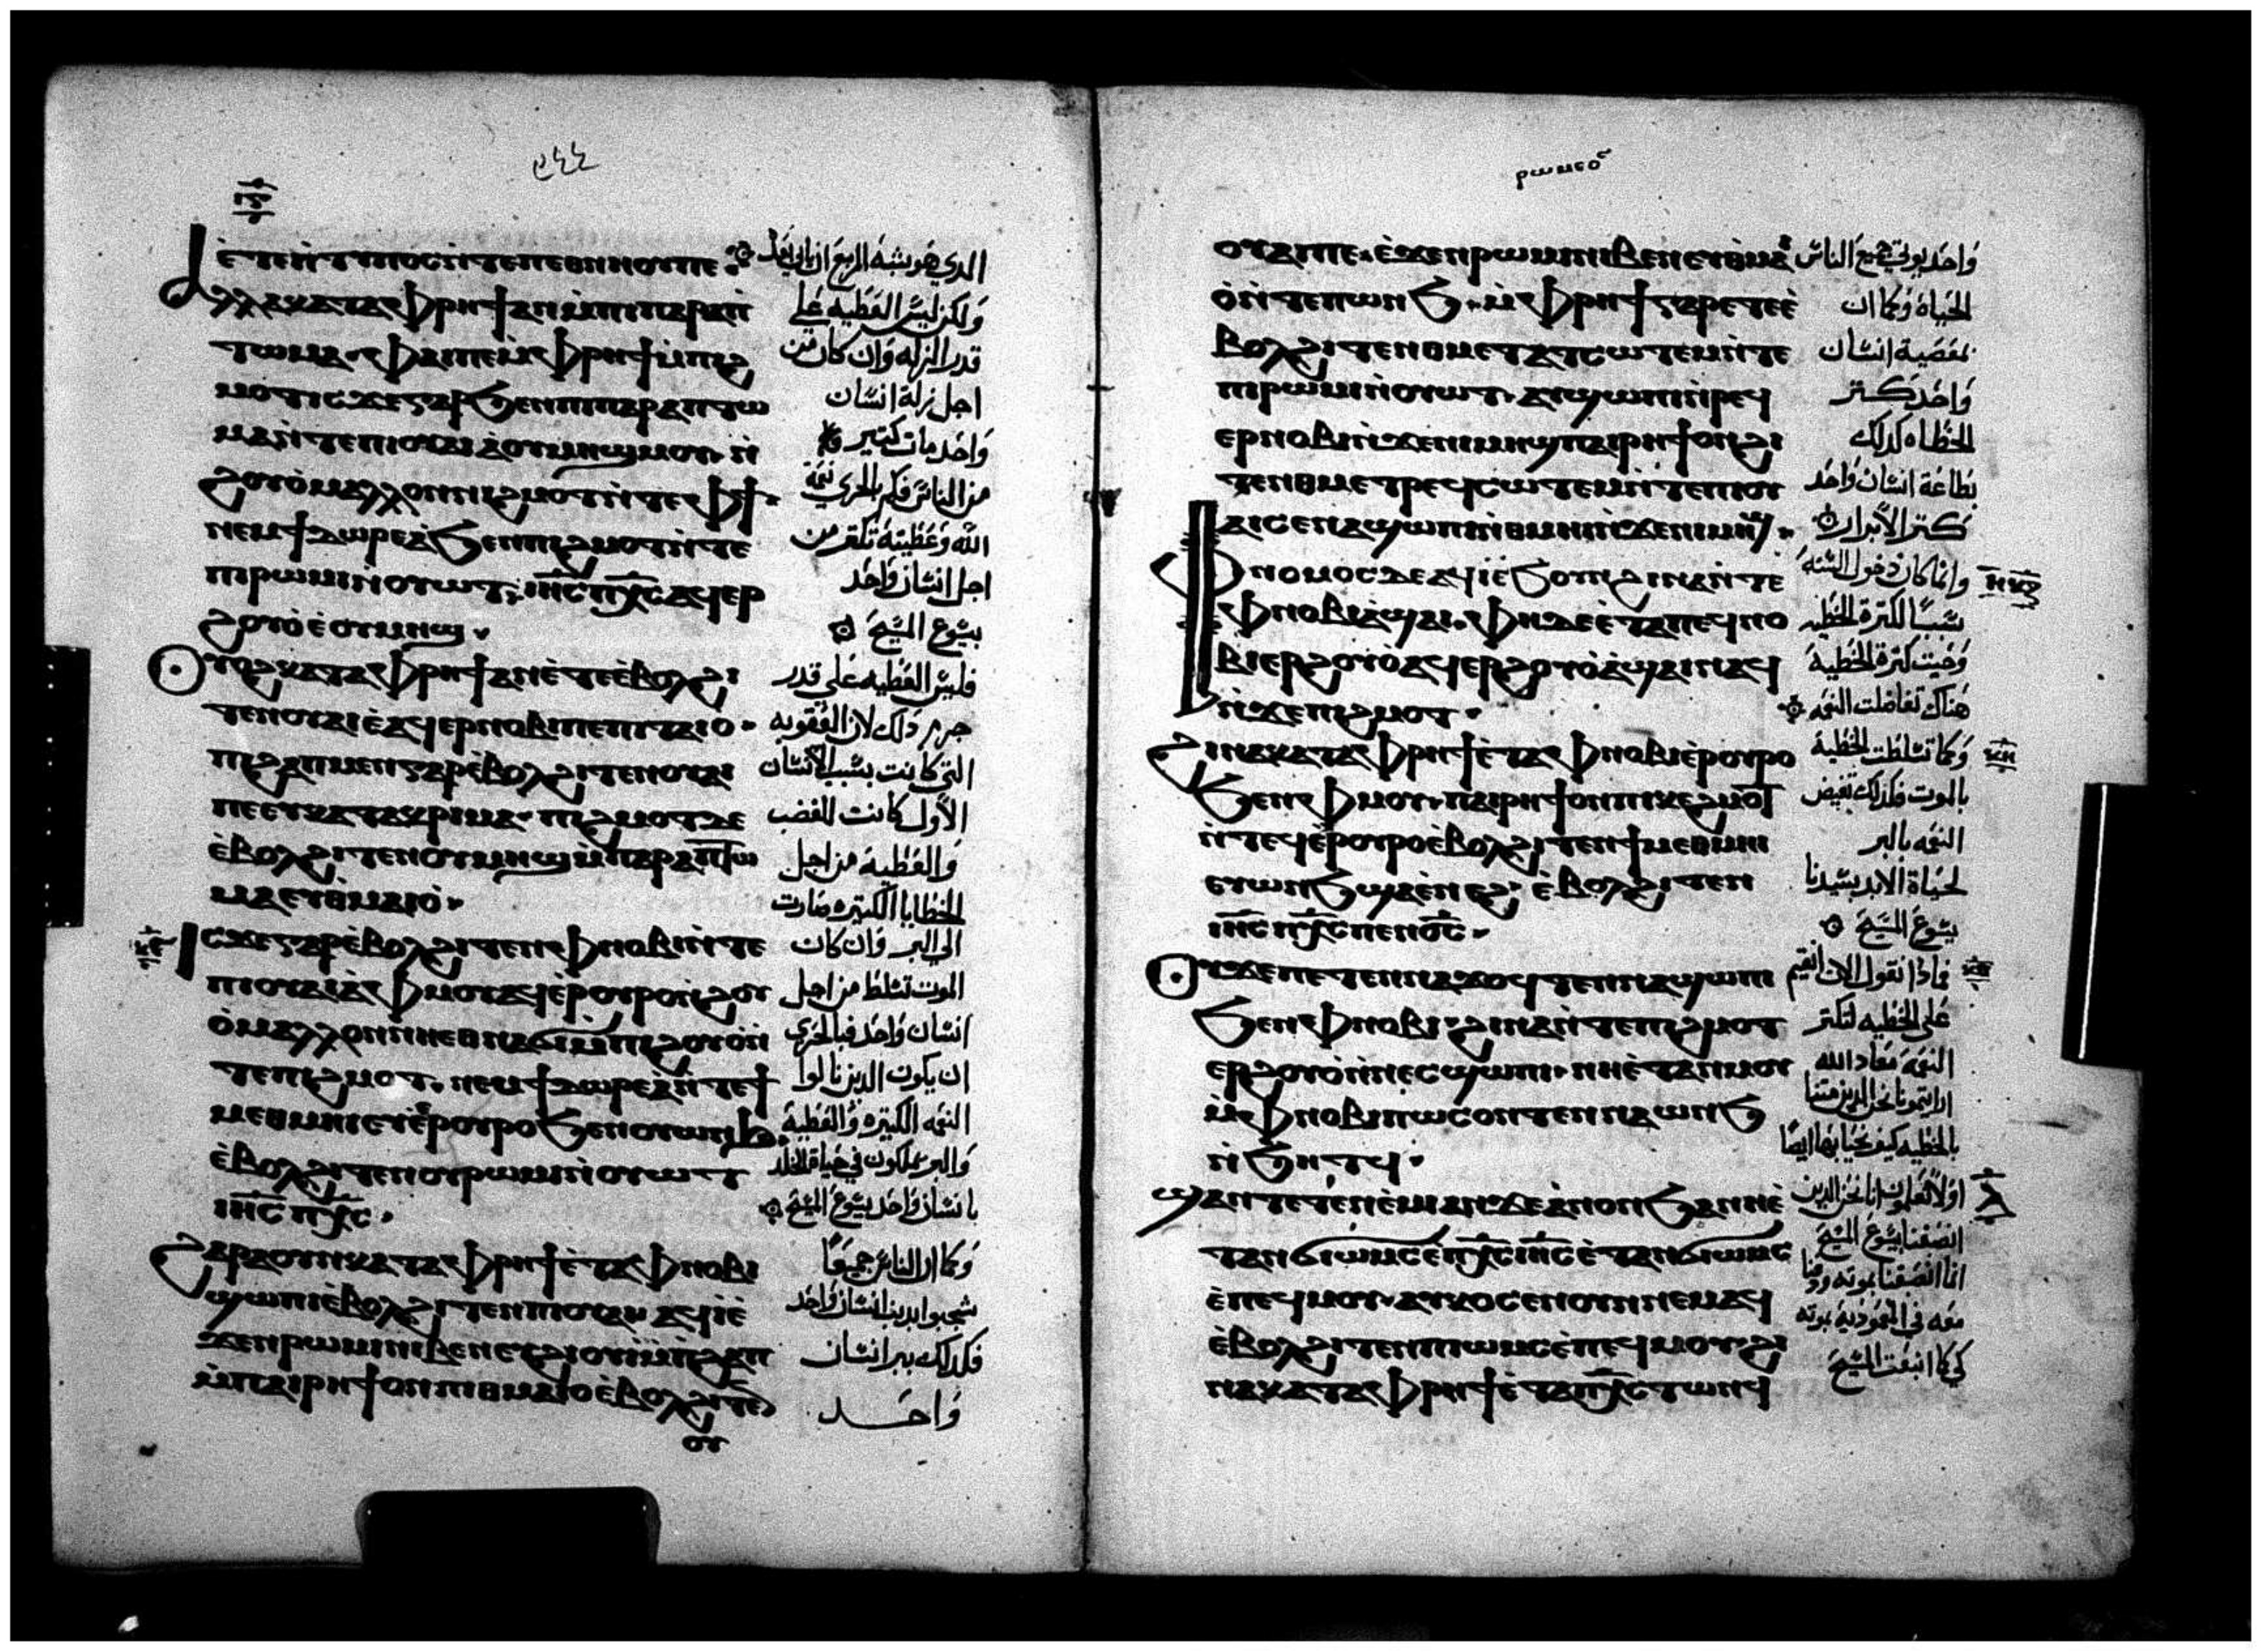 ⲉ̀ⲧⲉⲛ̀ⲧⲩⲡⲟⲥⲛ̀ⲧⲉⲡⲉⲑⲛⲏⲟⲩⲡⲉ
ⲁⲗⲗⲁⲕⲁⲧⲁⲫⲣⲏϯⲁⲛⲙ̀ⲡⲓⲡⲁⲣⲁⲡ
ⲧⲱⲙⲁ ⲫⲁⲓⲡⲉⲙ̀ⲫⲣⲏϯⲙ̀ⲡⲓϩ
ⲙⲟⲧⲓⲥϫⲉⲅⲁⲣϧⲉⲛⲡⲓⲡⲁⲣⲁⲡⲧⲱ
ⲙⲁⲛ̀ⲧⲉⲡⲓⲟⲩⲁⲓⲁ̀ⲟⲩⲙⲏϣⲙⲟⲩ ⲛ̀
ϩⲟⲩⲟ̀ⲙⲁⲗⲗⲟⲛⲡⲓϩⲙⲟⲧⲛ̀ⲧⲉⲫϯ
ⲛⲉⲙϯⲇⲱⲣⲉⲁ̀ϧⲉⲛⲡⲓϩⲙⲟⲧⲛ̀ⲧⲉ
ⲡⲓⲣⲱⲙⲓⲛ̀ⲟⲩⲱⲧ ⲓⲏⲥⲡⲭⲥⲁϥⲉⲣ
ϩⲟⲩⲟ̀ⲉ̀ⲟⲩⲙⲏϣ
ⲟⲩⲟϩⲕⲁⲧⲁⲫⲣⲏϯⲁⲛⲉ̀ⲧⲉⲉ̀ⲃⲟⲗϩⲓ
ⲧⲉⲛⲟⲩⲁⲓⲉ̀ⲁϥⲉⲣⲛⲟⲃⲓⲡⲉⲡⲓⲧⲁⲓⲟ
ⲡⲓϩⲁⲡⲙⲉⲛⲅⲁⲣⲉ̀ⲃⲟⲗϩⲓⲧⲉⲛⲟⲩⲁⲓ
ⲡⲉⲉⲩⲕⲁⲧⲁⲕⲣⲓⲙⲁ ⲡⲓϩⲙⲟⲧⲇⲉ
ⲉ̀ⲃⲟⲗϩⲓⲧⲉⲛⲟⲩⲙⲏϣⲙ̀ⲡⲁⲣⲁⲡⲧⲱ
ⲙⲁⲉⲩⲑⲙⲁⲓⲟ̀
ⲓⲥϫⲉⲅⲁⲣⲉ̀ⲃⲟⲗϩⲓⲧⲉⲛⲫⲛⲟⲃⲓⲛ̀ⲧⲉ
ⲡⲓⲟⲩⲁⲓⲁ̀ⲫⲙⲟⲩⲁϥⲉ̀ⲣⲟⲩⲣⲟⲛ̀ϩⲟⲩ
ⲟ̀ⲙⲁⲗⲗⲟⲛⲛⲏⲉⲑⲛⲁϭⲓⲙ̀ⲡⲓϩⲟⲩⲟ̀ⲛ̀
ⲧⲉⲡⲓϩⲙⲟⲧ ⲛⲉⲙϯⲇⲱⲣⲉⲁ̀ⲛ̀ⲧⲉϯ
ⲙⲉⲑⲙⲏⲓⲉⲩⲉ̀ⲣⲟⲩⲣⲟϧⲉⲛⲟⲩⲱⲛϧ
ⲉ̀ⲃⲟⲗϩⲓⲧⲉⲛⲟⲩⲣⲱⲙⲓⲛ̀ⲟⲩⲱⲧ
ⲓⲏⲥⲡⲭⲥ
ϩⲁⲣⲁⲟⲩⲛⲕⲁⲧⲁⲫⲣⲏϯⲉ̀ⲧⲁⲫⲛⲟⲃⲓ
ϣⲱⲡⲓⲉ̀ⲃⲟⲗϩⲓⲧⲉⲛⲡⲓⲟⲩⲁⲓ ⲁϥⲓ̀ⲉ̀
ϫⲉⲛⲣⲱⲙⲓⲛⲓⲃⲉⲛⲉⲩϩⲓⲟⲩⲓ̀ⲙ̀ⲡϩⲁⲡ
ⲙ̀ⲡⲁⲓⲣⲏϯⲟⲛⲡⲓⲑⲙⲁⲓⲟⲉ̀ⲃⲟⲗϩⲓⲧⲉⲛ
ⲟⲩ
الدي هو يشبه المزمع ان ياتي بعد
ولكن ليس العطيه على
قدر الزله وان كان من
اجل زلة انسان
واحد مات كتير
من الناس فكم بالحري نعمة
الله وعطيته تكتر من
اجل انسان واحد
يسوع المسيح
فليس العطيه على قدر
جرم دلك لان العقوبه
التي كانت بسبب الانسان
الاول كانت للغضب
والعطية من اجل
الخطايا الكتيره صارت
الى البر وان كان
الموت تسلط من اجل
انسان واحد فبالحري
ان يكون الدين نالوا
النعمه الكتيره والعطية
والبر يملكون في حياة الخلد
بانسان واحد يسوع المسيح
وكما ان الناس جميعا
شجبوا بدنب انسان واحد
فكدلك ببر انسان
واحد
ⲣⲱⲙⲉⲟⲥ
ⲟⲩⲁⲓⲡⲉ ⲉ̀ϫⲉⲛⲣⲱⲙⲓⲛⲓⲃⲉⲛⲉⲩⲑⲙⲁⲓ
ⲟ̀ⲛ̀ⲧⲉⲡⲱⲛϧ ⲙ̀ⲫⲣⲏϯⲅⲁⲣⲉⲧⲉⲉ̀
ⲃⲟⲗϩⲓⲧⲉⲛⲑⲙⲉⲧⲁⲧⲥⲱⲧⲉⲙⲛ̀ⲧⲉ
ⲡⲓⲣⲱⲙⲓⲛ̀ⲟⲩⲱⲧ ⲁⲩϣⲱⲡⲓⲛ̀ⲣⲉϥ
ⲉⲣⲛⲟⲃⲓⲛ̀ϫⲉⲛⲓⲙⲏϣⲡⲁⲓⲣⲏϯⲟⲛϩⲓ
ⲧⲉⲛⲑⲙⲉⲧⲣⲉϥⲥⲱⲧⲉⲙⲛ̀ⲧⲉⲡⲓⲟⲩ
ⲁⲓⲥⲉⲛⲁϣⲱⲡⲓⲛ̀ⲑⲙⲏⲓⲛ̀ϫⲉⲛⲓⲙⲏϣ
ⲫⲛⲟⲙⲟⲥⲇⲉⲁϥⲓ̀ⲉ̀ϧⲟⲩⲛϩⲓⲛⲁⲛ̀ⲧⲉ
ⲫⲛⲟⲃⲓⲁ̀ϣⲁⲓ ⲫⲏⲇⲉⲉ̀ⲧⲁⲡⲉϥⲛⲟ
ⲃⲓⲉⲣϩⲟⲩⲟ̀ⲁϥⲉⲣϩⲟⲩⲟ̀ⲁ̀ϣⲁⲓⲛⲁϥ
ⲛ̀ϫⲉⲡⲓϩⲙⲟⲧ
ϩⲓⲛⲁⲕⲁⲧⲁⲫⲣⲏϯⲉ̀ⲧⲁⲫⲛⲟⲃⲓⲉ̀ⲣⲟⲩⲣⲟ
ϧⲉⲛⲫⲙⲟⲩ ⲡⲁⲓⲣⲏϯⲟⲛⲡⲓⲕⲉϩⲙⲟⲧ
ⲛ̀ⲧⲉϥⲉ̀ⲣⲟⲩⲣⲟⲉ̀ⲃⲟⲗϩⲓⲧⲉⲛϯⲙⲉⲑⲙⲏⲓ
ⲉⲩⲱⲛϧϣⲁⲉ̀ⲛⲉϩ ⲉ̀ⲃⲟⲗϩⲓⲧⲉⲛ
ⲓⲏⲥⲡⲭⲥⲡⲉⲛⲟⲥ
ⲟⲩϫⲉⲡⲉⲧⲉⲛⲛⲁϫⲟϥⲧⲉⲛⲛⲁϣⲱⲡⲓ
ϧⲉⲛⲫⲛⲟⲃⲓ ϩⲓⲛⲁⲛ̀ⲧⲉⲡⲓϩⲙⲟⲧ
ⲉⲣϩⲟⲩⲟ̀ⲛ̀ⲛⲉⲥϣⲱⲡⲓ ⲛⲏⲉ̀ⲧⲁⲛⲙⲟⲩ
ⲙ̀ⲫⲛⲟⲃⲓⲡⲱⲥⲟⲛⲧⲉⲛⲛⲁⲱⲛϧ
ⲛ̀ϧⲏⲧϥ
ϣⲁⲛⲧⲉⲧⲉⲛⲉ̀ⲙⲓⲁⲛϫⲉⲁ̀ⲛⲟⲛϧⲁⲛⲏⲉ̀
ⲧⲁⲛϭⲓⲱⲙⲥⲉ̀ⲡⲭⲥⲓⲏⲥⲉ̀ⲧⲁⲛϭⲓⲱⲙⲥ
ⲉ̀ⲡⲉϥⲙⲟⲩ ⲁⲩⲕⲟⲥⲉⲛⲟⲩⲛⲛⲉⲙⲁϥ
ⲉ̀ⲃⲟⲗϩⲓⲧⲉⲛⲡⲓⲱⲙⲥⲉ̀ⲡⲉϥⲙⲟⲩ ϩⲓ
ⲛⲁⲕⲁⲧⲁⲫⲣⲏϯⲉ̀ⲧⲁⲡⲭⲥⲧⲱⲛϥ
واحد يوتي جميع الناس
الحياة وكما ان
بمعصية انسان
واحد كتر
الخطاه كدلك
بطاعة انسان واحد
كتر الابرار
وانما كان دخول السنه
سببا لكترة الخطيه
وحيت كترة الخطية
هناك تفاضلت النعمه
وكما تسلطت الخطية
بالموت فكدلك تفيض
النعمه بالبر
لحياة الابد بسيدنا
يسوع المسيح
فمادا نقول الان انقيم
على الخطيه لتكتر
النعمه معاد الله
بالخطيه كيف نحيا بها ايضا
اولا تعلمون انا نحن الدين
انصبغنا بيسوع المسيح
انما انصبغنا بموته ودفنا
معه في المعموديه بموته
كي كما انبعت المسيح